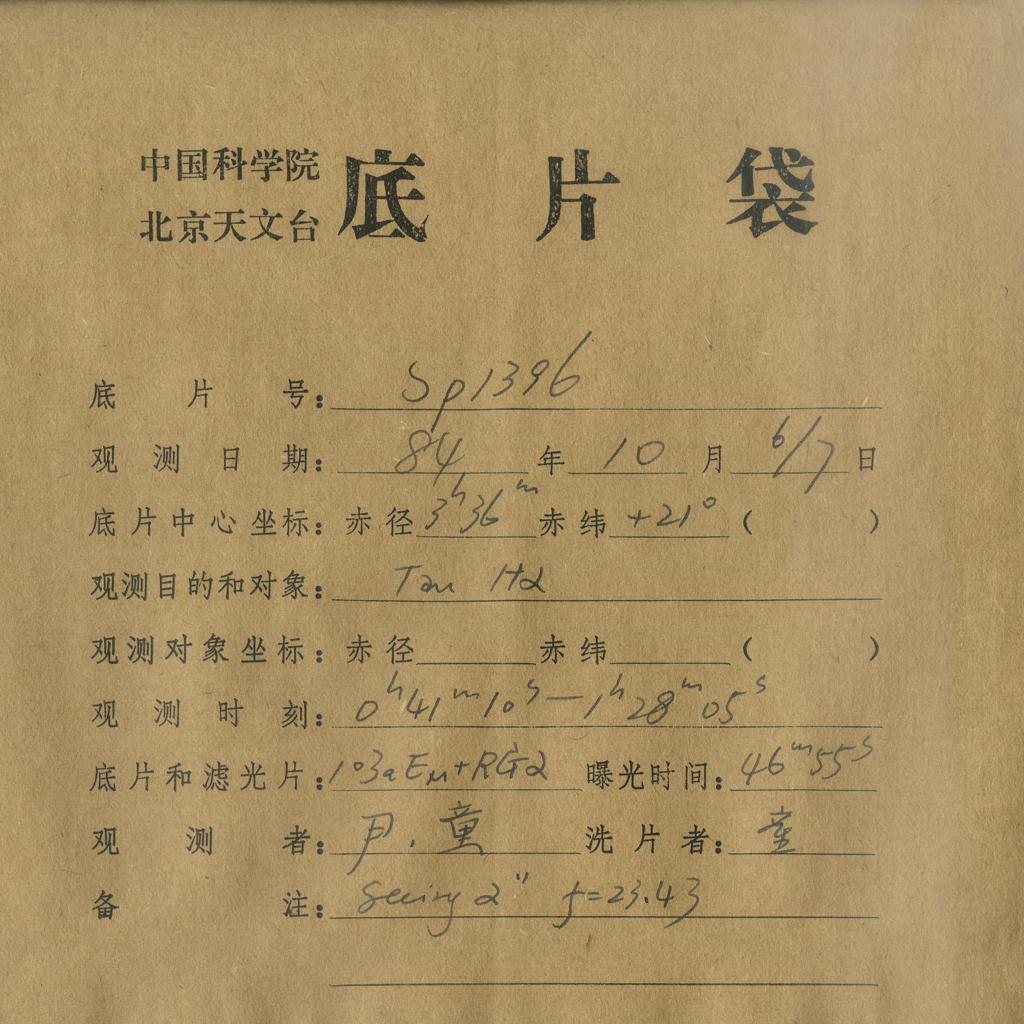 中国科学院
北京天文台
底片袋
底片号：Sp1396
观测日期：84年10月6/7日
底片中心坐标：赤径3ʰ36ᵐ赤纬+21°（ ）
观测目的和对象：Tau Hα
观测对象坐标：赤径 赤纬 （ ）
观测时刻：0ʰ41ᵐ10ˢ—1ʰ28ᵐ05ˢ
底片和滤光片：103aE 曝光时间：46ᵐ55ˢ
观测者：尹.童 洗片者：童
备注：Seeing 2" f=23.43